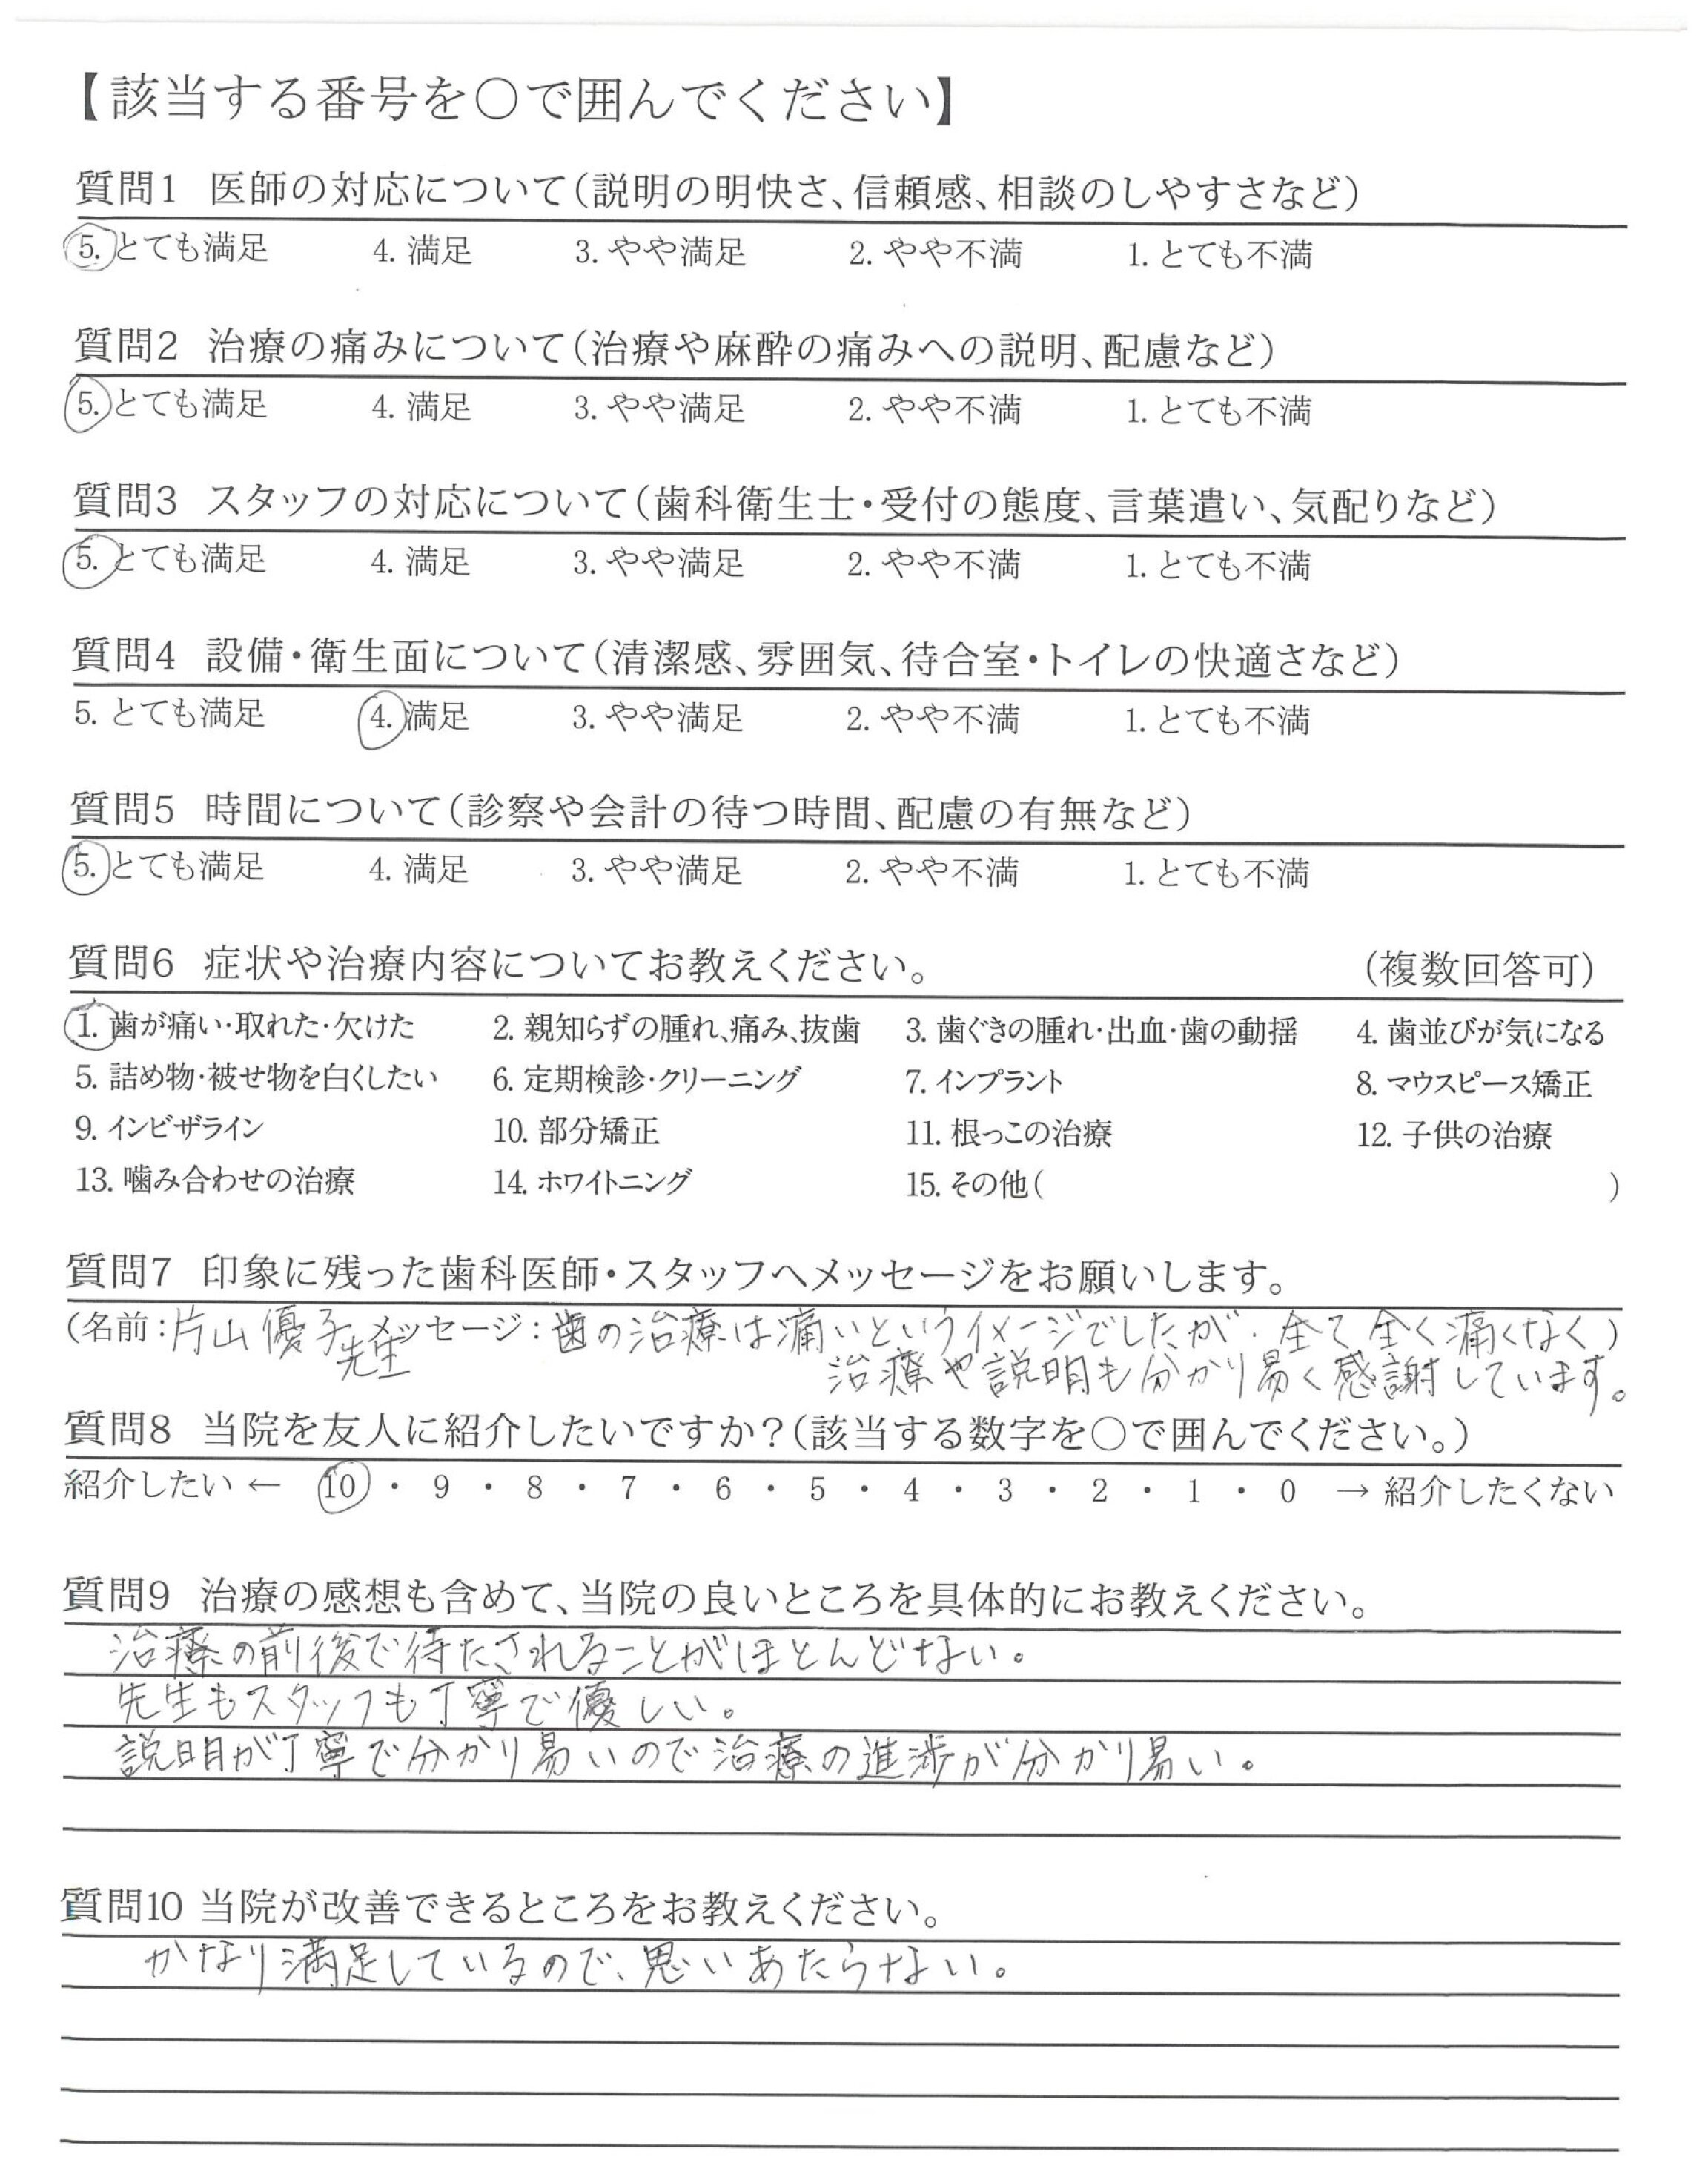 【該当する番号を○で囲んでください】
質問1 医師の対応について(説明の明快さ、信頼感、相談のしやすさなど)
5. とても満足 4. 満足 3. やや満足 2. やや不満 1. とても不満
質問2 治療の痛みについて(治療や麻酔の痛みへの説明、配慮など)
5. とても満足 4. 満足 3. やや満足 2. やや不満 1. とても不満
質問3 スタッフの対応について(歯科衛生士・受付の態度、言葉遣い、気配りなど)
5. とても満足 4. 満足 3. やや満足 2. やや不満 1. とても不満
質問4 設備・衛生面について(清潔感、雰囲気、待合室・トイレの快適さなど)
5. とても満足 4. 満足 3. やや満足 2. やや不満 1. とても不満
質問5 時間について(診察や会計の待つ時間、配慮の有無など)
5. とても満足 4. 満足 3. やや満足 2. やや不満 1. とても不満
質問6 症状や治療内容についてお教えください。 (複数回答可)
1. 歯が痛い・取れた・欠けた 2. 親知らずの腫れ、痛み、抜歯 3. 歯ぐきの腫れ・出血・歯の動揺 4. 歯並びが気になる
5. 詰め物・被せ物を白くしたい 6. 定期検診・クリーニング 7. インプラント 8. マウスピース矯正
9. インビザライン 10. 部分矯正 11. 根っこの治療 12. 子供の治療
13. 噛み合わせの治療 14. ホワイトニング 15. その他( )
質問7 印象に残った歯科医師・スタッフへメッセージをお願いします。
(名前:片山優子先生 メッセージ:歯の治療は痛いというイメージでしたが、全て全く痛くなく)
治療や説明も分かり易く感謝しています。
質問8 当院を友人に紹介したいですか?(該当する数字を○で囲んでください。)
紹介したい ← 10 ・ 9 ・ 8 ・ 7 ・ 6 ・ 5 ・ 4 ・ 3 ・ 2 ・ 1 ・ 0 → 紹介したくない
質問9 治療の感想も含めて、当院の良いところを具体的にお教えください。
治療の前後で待たされることがほとんどない。
先生もスタッフも丁寧で優しい。
説明が丁寧で分かり易いので治療の進渉が分かり易い。
質問10 当院が改善できるところをお教えください。
かなり満足しているので、思いあたらない。